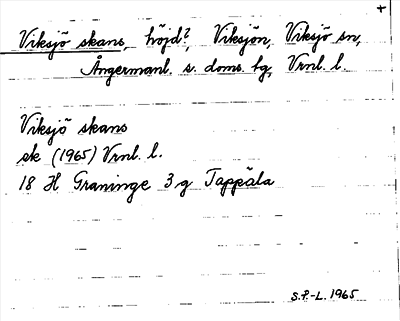 +
Viksjö skans, höjd?, Viksjön, Viksjö sn,
Ångermanl. s. doms. tg, Vrnl. l.
Viksjö skans
sk (1965) Vrnl. l.
18 H Graninge 3 g Tappäla
S.P.-L. 1965